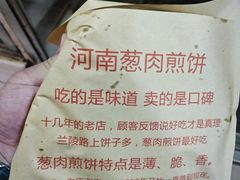 河南葱肉煎饼
吃的是味道 卖的是口碑
十几年的老店，顾客反馈说好吃才是真理
兰陵路上饼子多，葱肉煎饼最好吃
葱肉煎饼特点是薄、脆、香。